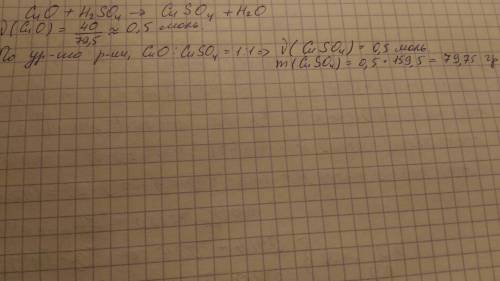 CuO + H₂SO₄ → CuSO₄ + H₂O
ν(CuO) = 40/79,5 ≈ 0,5 моль
По ур-ию р-ии, CuO : CuSO₄ = 1:1 => ν(CuSO₄) = 0,5 моль
m(CuSO₄) = 0,5 · 159,5 = 79,75 гр